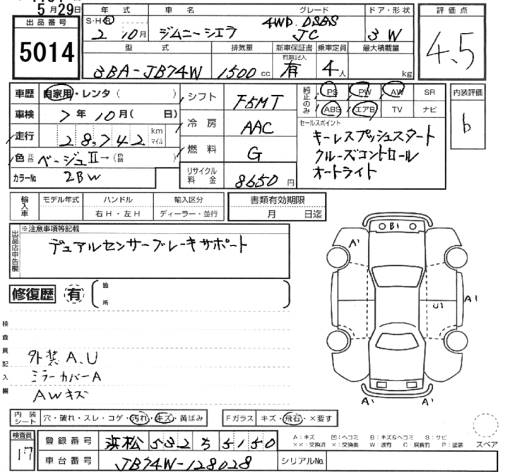 5月29日
出品番号 5014
S・H・R 年式 2 10月
車名 ジムニーシエラ
グレード 4WD DSBS JC
ドア・形状 3 W
評価点 4.5
型式 3BA-JB74W
排気量 1500 cc
新車保証書 有
乗車定員 4人
最大積載量 kg
車歴 自家用・レンタ ( )
車検 7年10月(日)
走行 28,742 km マイル
色 ベージュⅡ→( )
カラーNo 2BW
シフト F5MT
冷房 AAC
燃料 G
リサイクル料金 8650円
純正のみ PS PW AW SR
ABS エアB TV ナビ
内装評価 b
セールスポイント
キーレスプッシュスタート
クルーズコントロール
オートライト
輸入車 モデル年式 ハンドル 右H・左H 輸入区分 ディーラー・並行
書類有効期限 月 日迄
出品店申告欄
※注意事項等記載
デュアルセンサーブレーキサポート
修復歴 有 ( 箇所 )
検査員記入欄
外装A.U
ミラーカバーA
AWキズ
A' B1 A' A' U1 A' A' A'
内装シート 穴・破れ・スレ・コゲ・汚れ・キズ・黄ばみ
Fガラス キズ・飛石・×要す
検査員 17
登録番号 浜松 532 ち 5150
車台番号 JB74W-128028
シリアルNo.
スペア